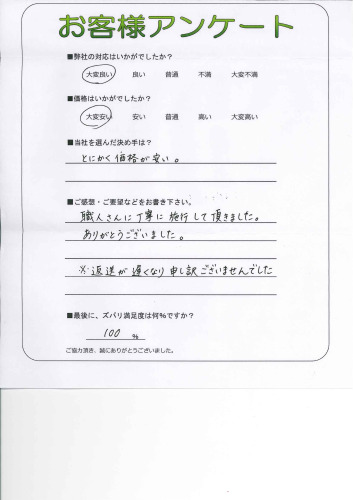 お客様アンケート
■弊社の対応はいかがでしたか？
大変良い 良い 普通 不満 大変不満
■価格はいかがでしたか？
大変安い 安い 普通 高い 大変高い
■当社を選んだ決め手は？
とにかく価格が安い。
■ご感想・ご要望などをお書き下さい。
職人さんに丁寧に施行して頂きました。
ありがとうございました。
※返送が遅くなり申し訳ございませんでした
■最後に、ズバリ満足度は何%ですか？
100 %
ご協力頂き、誠にありがとうございました。